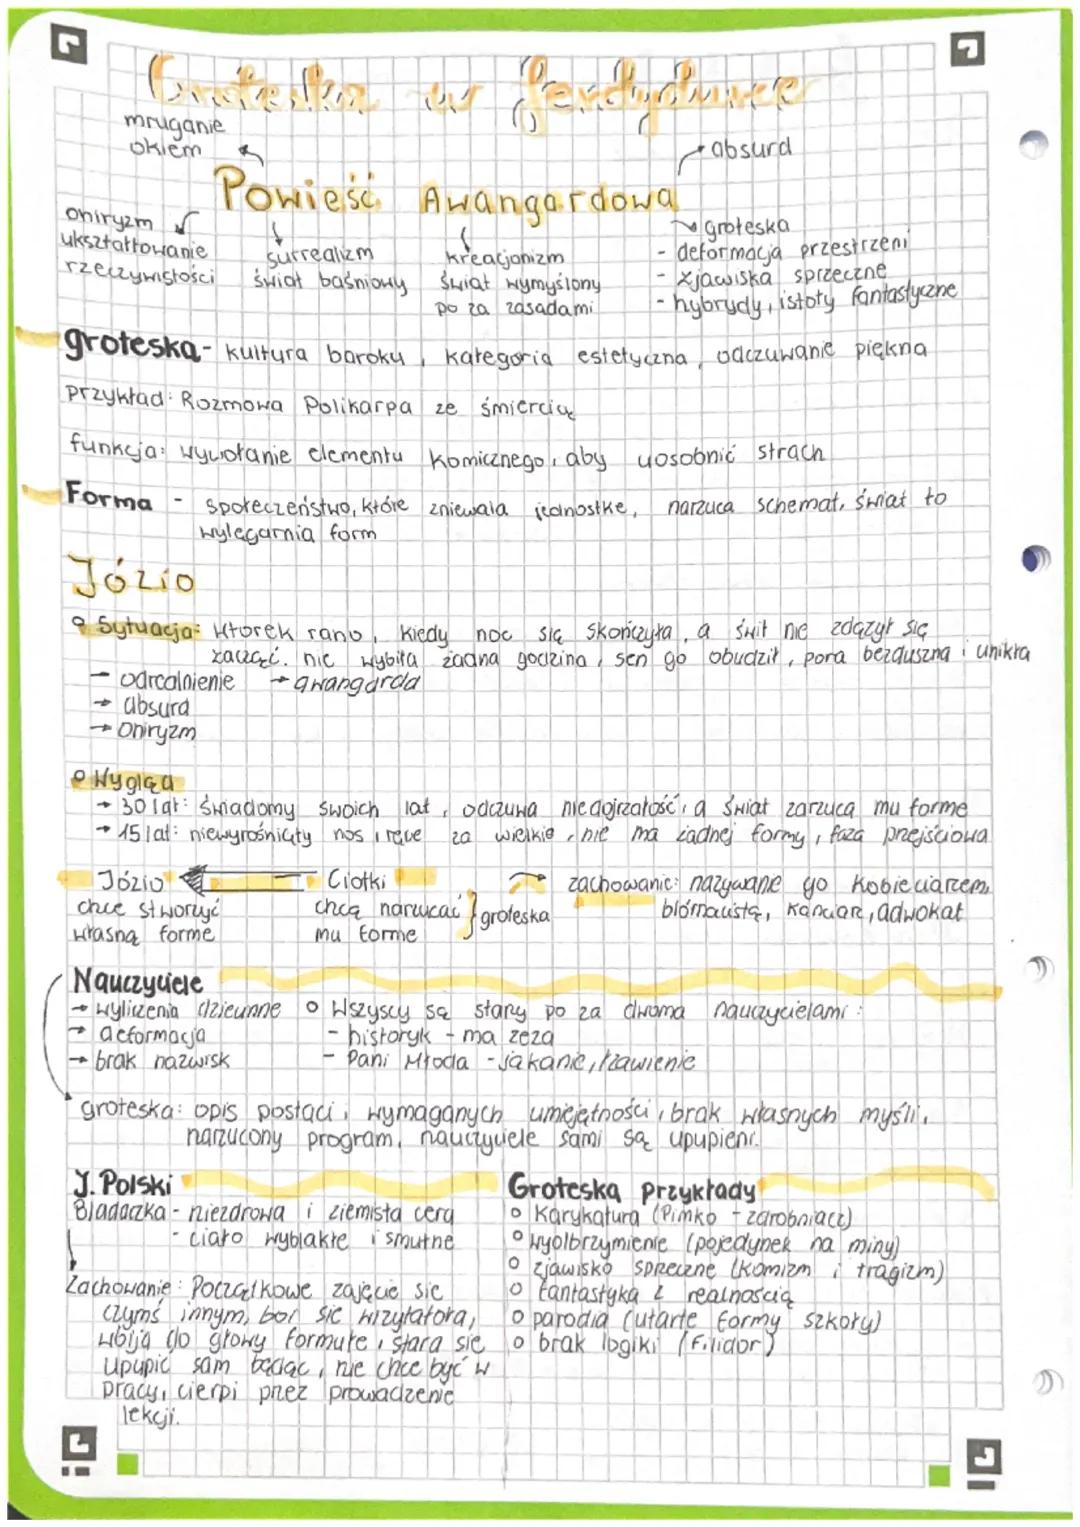 Groteska w Ferdydurce
mruganie
okiem
absurd
Powieść Awangardowa
oniryzm
ukształtowanie
rzeczywistości
surrealizm
świat baśniowy
kreacjonizm
świat wymyślony
po za zasadami
groteska
- deformacja przestrzeni
- zjawiska sprzeczne
- hybrydy, istoty fantastyczne
groteska - kultura baroku, kategoria estetyczna, odczuwanie piękna
przykład: Rozmowa Polikarpa ze śmiercią
funkcja: wywołanie elementu komicznego, aby uosobnić strach
Forma - społeczeństwo, które zniewala jednostkę, narzuca schemat, świat to
wylęgarnia form
Józio
Sytuacja: wtorek rano, kiedy noc się skończyła, a świt nie zdążył się
zacząć. nie wybiła żadna godzina, sen go obudził, pora bezduszna i unikła
→ odrealnienie → awangarda
→ absurd
→ oniryzm
Wygląd
→ 30 lat: świadomy swoich lat, odczuwa niedojrzałość, a świat zarzuca mu formę
→ 15 lat: niewyrośnięty nos, ręce za wielkie, nie ma żadnej formy, faza przejściowa
Józio
chce stworzyć
własną formę
Ciotki
chcą narzucać
mu formę
groteska
zachowanie: nazywanie go kobieciarzem,
adwokat
Nauczyciele
→ wyliczenia dziwne
→ deformacja
→ brak nazwisk
Wszyscy są starzy po za dwoma nauczycielami:
- historyk - ma zeza
- Pani Młoda - jąkanie, łzawienie
groteska: opis postaci, wymaganych umiejętności, brak własnych myśli,
narzucony program, nauczyciele sami są upupieni.
J. Polski
Bladaczka - niezdrowa i ziemista cera
- ciało wyblakłe i smutne
Zachowanie: Początkowe zajęcie się
czymś innym, boi się wizytatora,
wbija do głowy formułę, stara się
upupić sam będąc, nie chce być w
pracy, cierpi przez prowadzenie
lekcji.
Groteska przykłady
Karykatura (Pimko - zdrobniacz)
wyolbrzymienie (pojedynek na miny)
zjawisko sprzeczne (komizm i tragizm)
fantastyka z realnością
parodia (utarte formy szkoły)
brak logiki (Filidor)